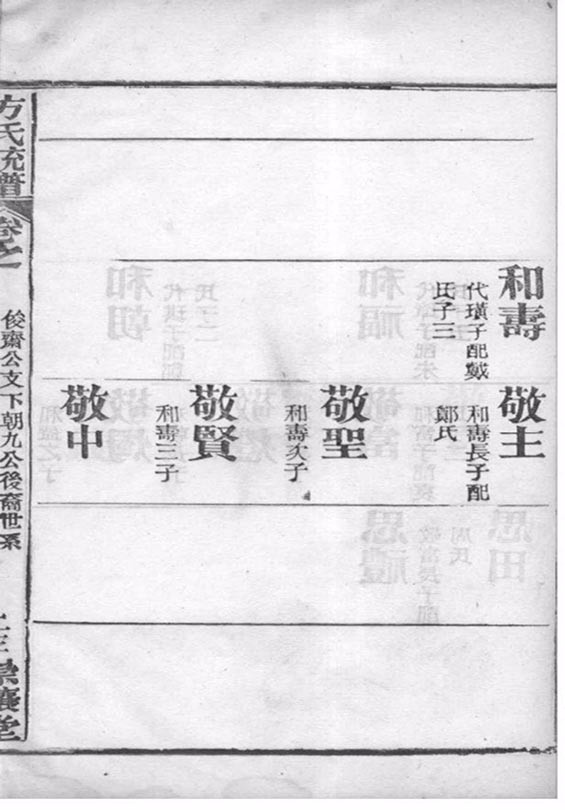 和壽
代璜子配戴
氏子三
敬主
和壽長子配
鄭氏
敬聖
和壽次子
敬賢
和壽三子
敬中
方氏統譜
卷之
俊齋公文下朝九公後裔世系